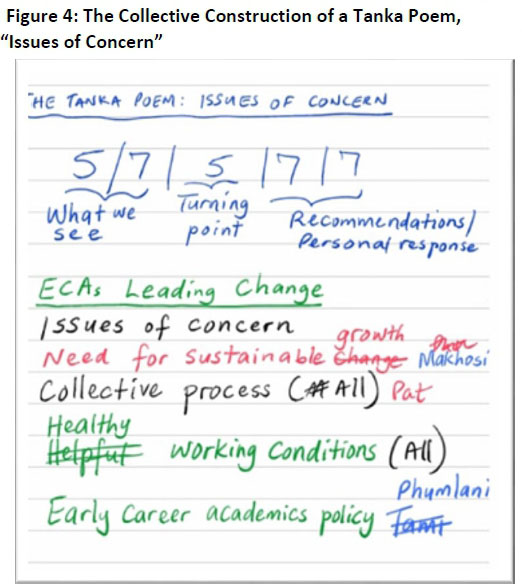 Figure 4: The Collective Construction of a Tanka Poem,
“Issues of Concern”
HE TANKA POEM: ISSUES OF CONCERN
5/7/5/7/7
What we see
Turning point
Recommendations/ Personal response
ECAs Leading Change
Issues of concern
Need for sustainable Change growth Makhosi
Collective process (# All) Pat
Healthy
Helpful Working Conditions (All)
Phumlani
Early Career academics policy